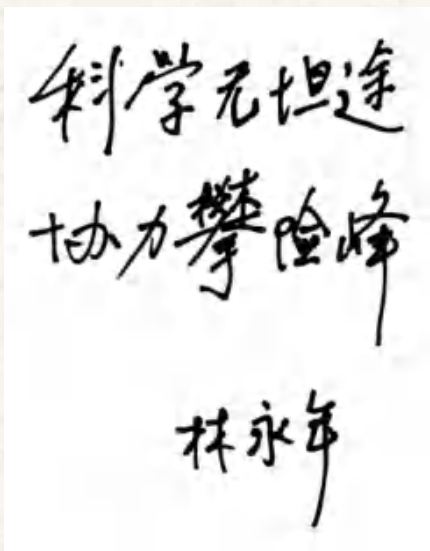 科学无坦途
协力攀险峰
林永年